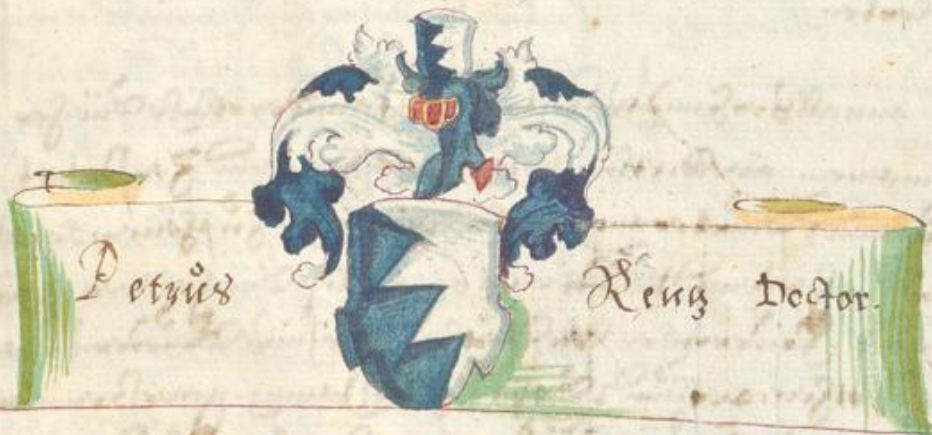 Petrůs Renz Doctor.